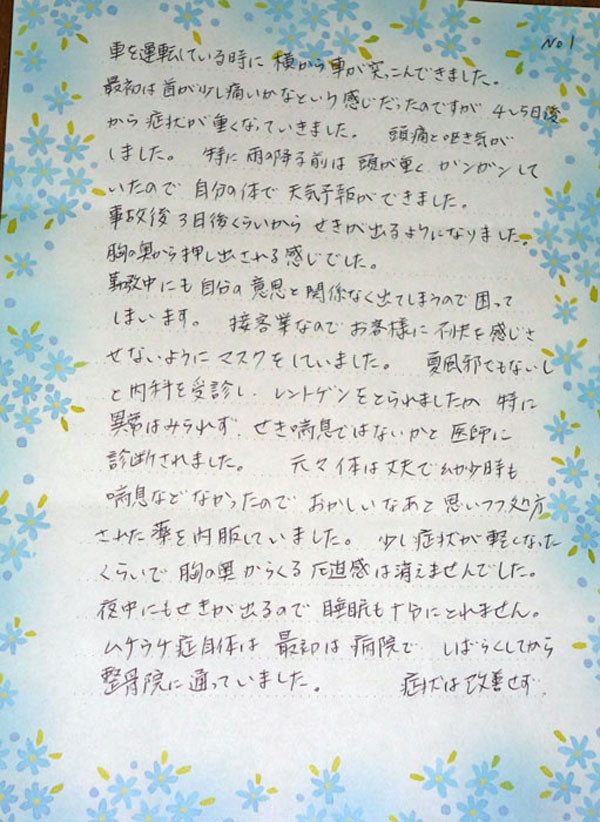 No 1
車を運転している時に 横から車が突っこんできました。
最初は首が少し痛いかなという感じだったのですが 4、5日後
から症状が重くなっていきました。 頭痛と吐き気が
しました。 特に雨の降る前は 頭が重く ガンガンして
いたので 自分の体で天気予報ができました。
事故後3日後くらいから せきが出るようになりました。
胸の奥から押し出される感じでした。
中にも自分の意思と関係なく出てしまうので困って
しまいます。 接客業なのでお客様に不快を感じさ
せないようにマスクをしていました。 夏風邪でもないし
と内科を受診し、レントゲンをとられましたが 特に
異常はみられず、せき喘息ではないかと医師に
診断されました。 元々体は丈夫で幼少時も
喘息などなかったので おかしいなあと思いつつ処方
された薬を内服していました。 少し症状が軽くなった
くらいで 胸の奥からくる圧迫感は消えませんでした。
夜中にもせきが出るので 睡眠も十分にとれません。
ムチウチ症自体は 最初は病院で しばらくしてから
整骨院に通っていました。 症状は改善せず、